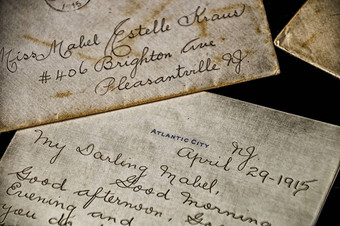 1-15
Miss Mabel Estelle Kraus
#406 Brighton Ave.
Pleasantville NJ
ATLANTIC CITY NJ.
April 29-1915
My Darling Mabel,
Good afternoon, Good Morning
Evening and
you